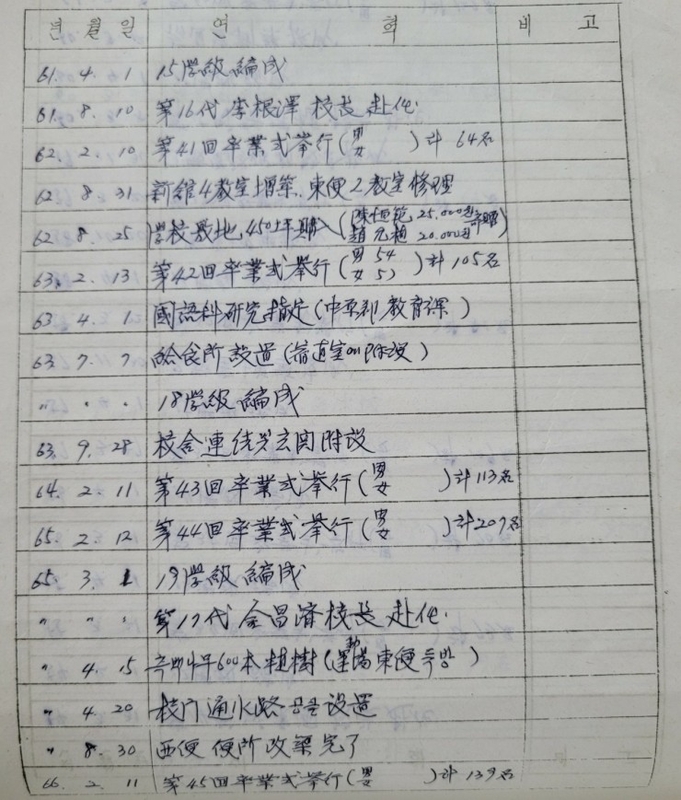 년 월 일 연 혁 비 고
61. 4. 1 15學級 編成
61. 8. 10 第16代 李根澤 校長 赴任.
62. 2. 10 第41回 卒業式 挙行 (男 女 ) 計 64名
62 8 31 新館4教室增築. 東便2教室修理
62 8. 25 學校敷地 450坪 購入 ( 25.000원 20.000원 )
63. 2. 13 第42回 卒業式 挙行 (男 54 女 51) 計 105名
63 4. 1 國語科研究指定 (中原郡 教育課)
63 7. 7 給食所 設置 (宿直室에 附設)
〃 . . 18學級 編成
63. 9. 28 校舍 連結 玄関 附設
64. 2. 11 第43回 卒業式 挙行 (男 女 ) 計 113名
65. 2. 12 第44回 卒業式 挙行 (男 女 ) 計 207名
65 3. 1 19學級 編成
〃 〃 . 第17代 昌濟 校長 赴任.
〃 4. 15 600本 植樹 (運動場 東便 뚝방)
〃 4. 20 校门 通水路 공굴 設置
〃 8. 30 西便 便所 改築 完了
66. 2. 11 第45回 卒業式 挙行 (男 女 ) 計 139名